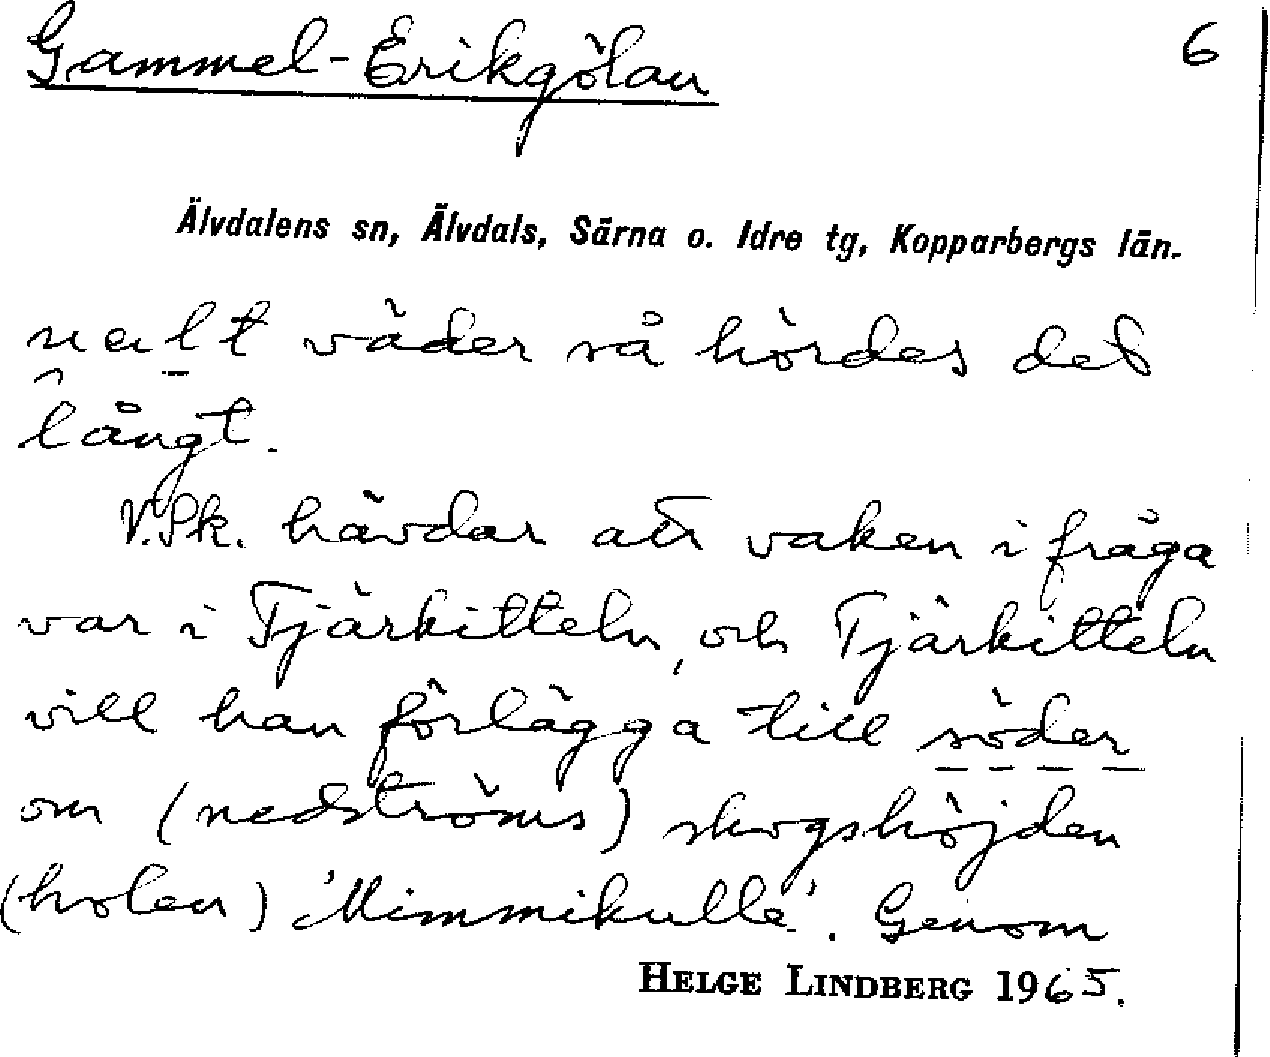 Gammel-Erikgölan 6
Älvdalens sn, Älvdals, Särna o. Idre tg, Kopparbergs län.
väder så hördes det
långt.
V.Pk. hävdar att vaken i fråga
var i Tjärkitteln, och Tjärkitteln
vill han förlägga till söder
om (nedströms) skogshöjden
(holen) 'Mimmikulla'. Genom
HELGE LINDBERG 1965.